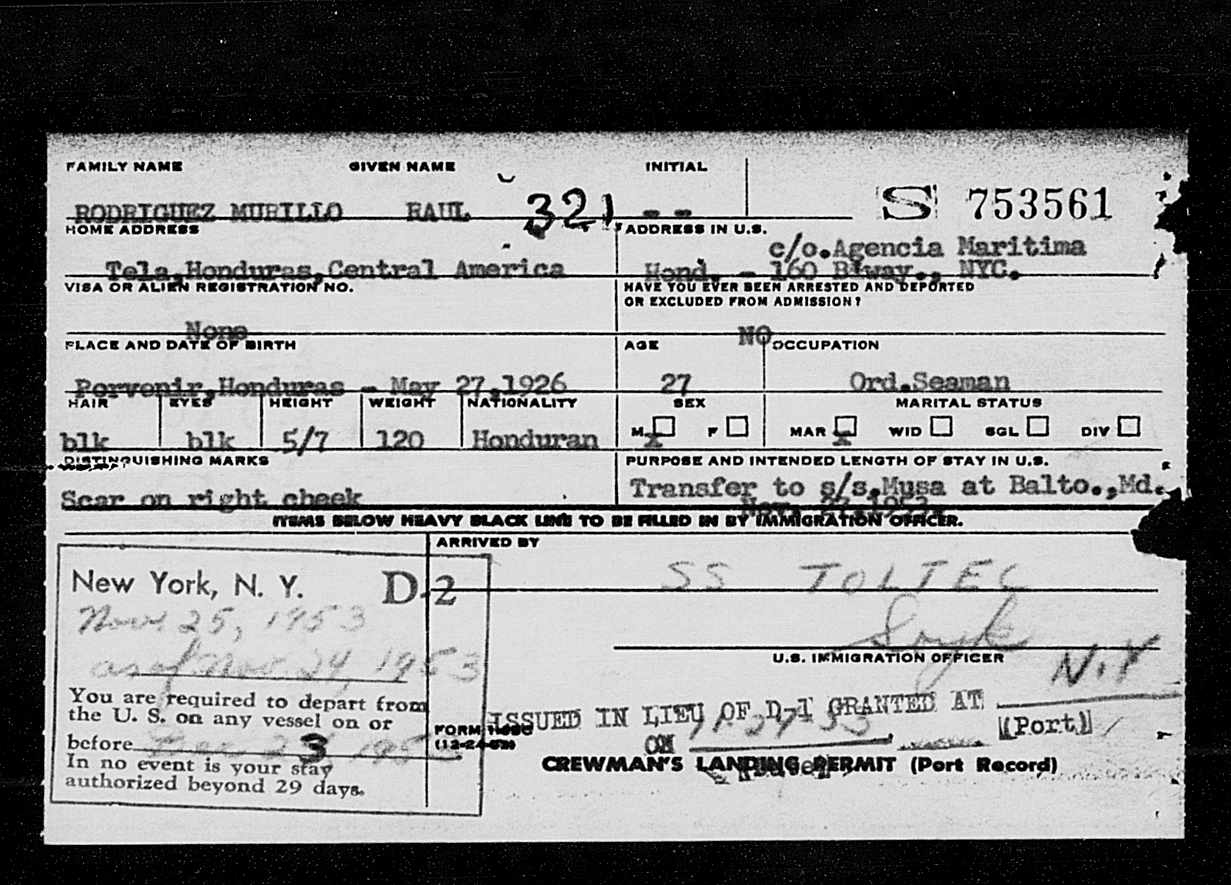 FAMILY NAME GIVEN NAME INITIAL
RODRIGUEZ MURILLO RAUL 321 - - S 753561
HOME ADDRESS ADDRESS IN U.S.
c/o.Agencia Maritima
Tela,Honduras,Central America Hond. - 160 Bway., NYC.
VISA OR ALIEN REGISTRATION NO. HAVE YOU EVER BEEN ARRESTED AND DEPORTED
OR EXCLUDED FROM ADMISSION?
None NO
PLACE AND DATE OF BIRTH AGE OCCUPATION
Porvenir,Honduras - May 27,1926 27 Ord.Seaman
HAIR EYES HEIGHT WEIGHT NATIONALITY SEX MARITAL STATUS
blk blk 5/7 120 Honduran M x F MAR x WID SGL DIV
DISTINGUISHING MARKS PURPOSE AND INTENDED LENGTH OF STAY IN U.S.
Scar on right cheek Transfer to s/s.Musa at Balto.,Md.
Nov. 1953.
ITEMS BELOW HEAVY BLACK LINE TO BE FILLED IN BY IMMIGRATION OFFICER.
ARRIVED BY
SS TOLTEC
New York, N. Y. D-2
Nov 25, 1953
as of Nov. 24, 1953
U.S. IMMIGRATION OFFICER
N.Y
You are required to depart from
the U. S. on any vessel on or
before 3
In no event is your stay
authorized beyond 29 days.
ISSUED IN LIEU OF D-1 GRANTED AT
(Port)
FORM
(12-24-52)
ON
CREWMAN'S LANDING PERMIT (Port Record)